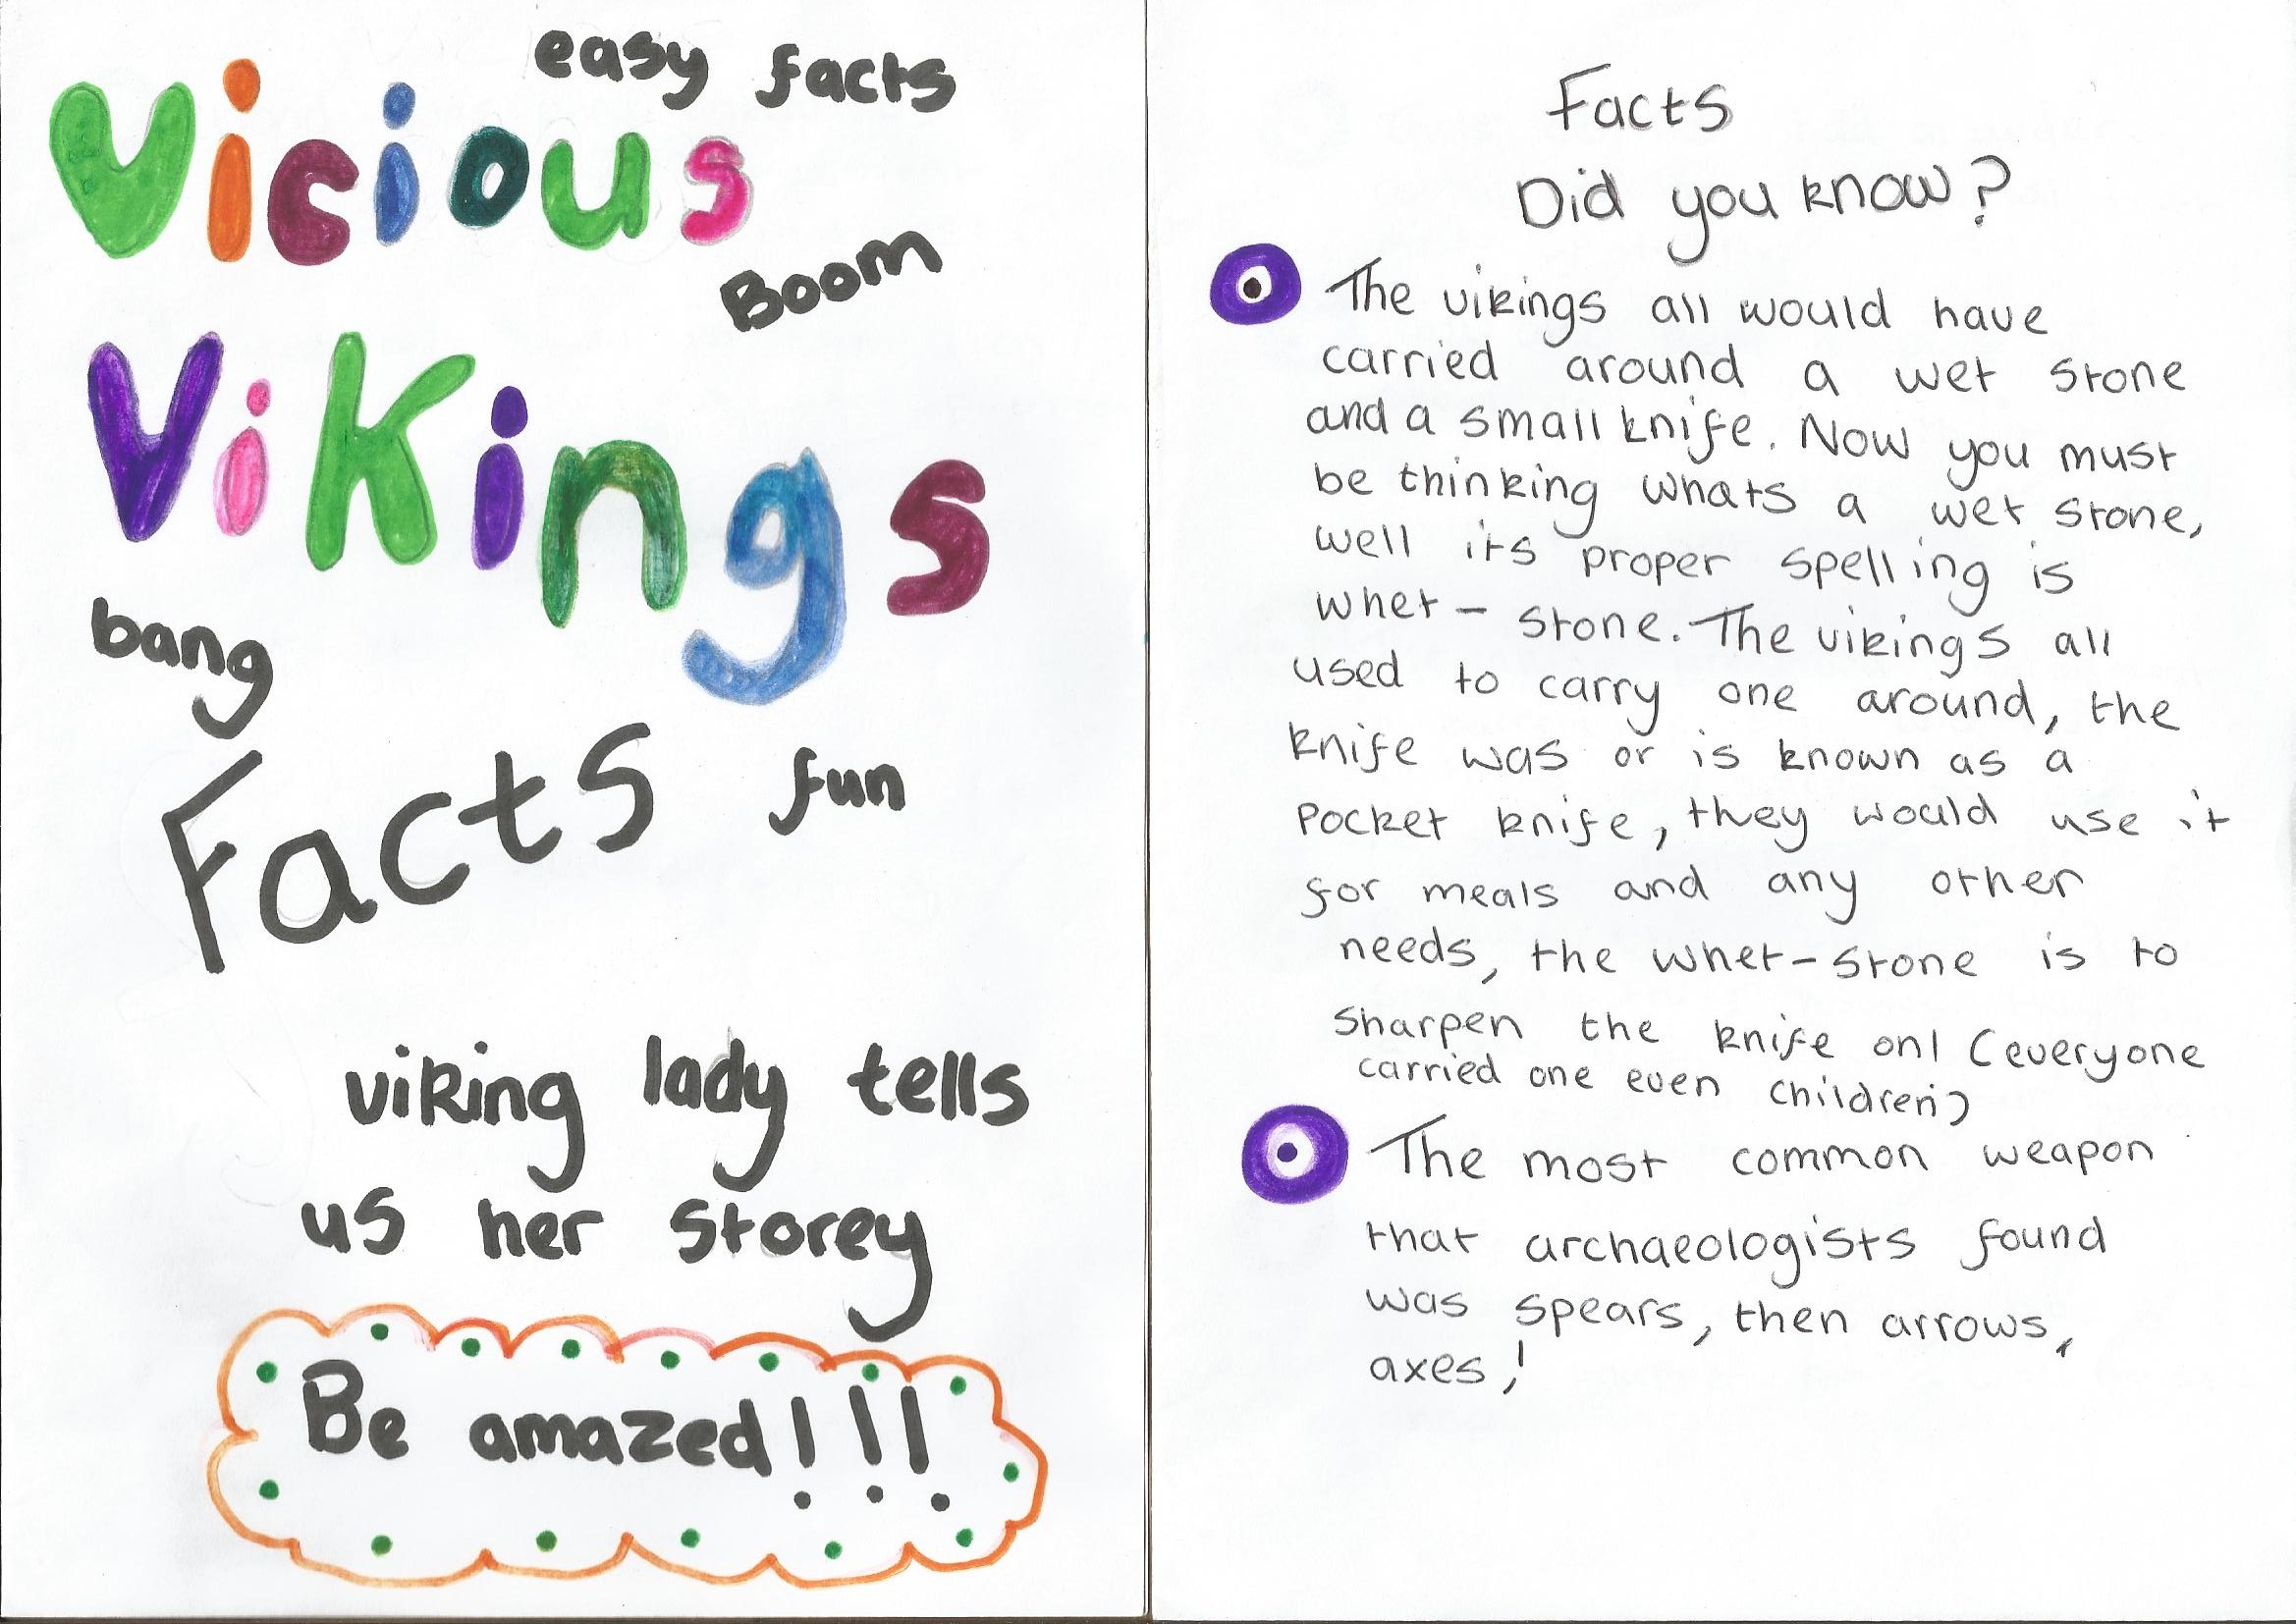 easy facts
Vicious
Boom
Vikings
bang
Facts
fun
viking lady tells
us her storey
Be amazed!!!
Facts
Did you know?
The vikings all would have
carried around a wet stone
and a small knife. Now you must
be thinking whats a wet stone,
well its proper spelling is
whet - stone. The vikings all
used to carry one around, the
knife was or is known as a
pocket knife, they would use it
for meals and any other
needs, the whet-stone is to
sharpen the knife on! (everyone
carried one even children!)
The most common weapon
that archaeologists found
was spears, then arrows,
axes,!